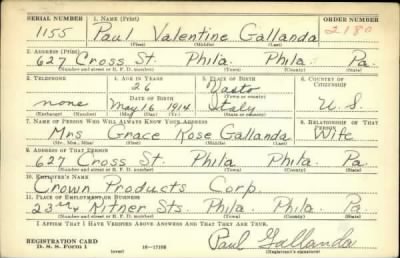 SERIAL NUMBER 1. NAME (Print) ORDER NUMBER
1155 Paul Valentine Gallanda 2180
(First) (Middle) (Last)
2. ADDRESS (Print)
627 Cross St. Phila. Phila. Pa.
(Number and street or R. F. D. number) (Town) (County) (State)
3. TELEPHONE 4. AGE IN YEARS 5. PLACE OF BIRTH 6. COUNTRY OF CITIZENSHIP
26 Vasto
DATE OF BIRTH (Town or county)
none May 16, 1914 Italy U. S.
(Exchange) (Number) (Mo.) (Day) (Yr.) (State or country)
7. NAME OF PERSON WHO WILL ALWAYS KNOW YOUR ADDRESS 8. RELATIONSHIP OF THAT PERSON
Mrs Grace Rose Gallanda Wife
(Mr., Mrs., Miss) (First) (Middle) (Last)
9. ADDRESS OF THAT PERSON
627 Cross St. Phila. Phila. Pa.
(Number and street or R. F. D. number) (Town) (County) (State)
10. EMPLOYER'S NAME
Crown Products Corp.
11. PLACE OF EMPLOYMENT OR BUSINESS
23rd & Ritner Sts. Phila. Phila. Pa
(Number and street or R. F. D. number) (Town) (County) (State)
I AFFIRM THAT I HAVE VERIFIED ABOVE ANSWERS AND THAT THEY ARE TRUE.
REGISTRATION CARD
D. S. S. Form 1 (over) 16-17105 Paul Gallanda
(Registrant's signature)